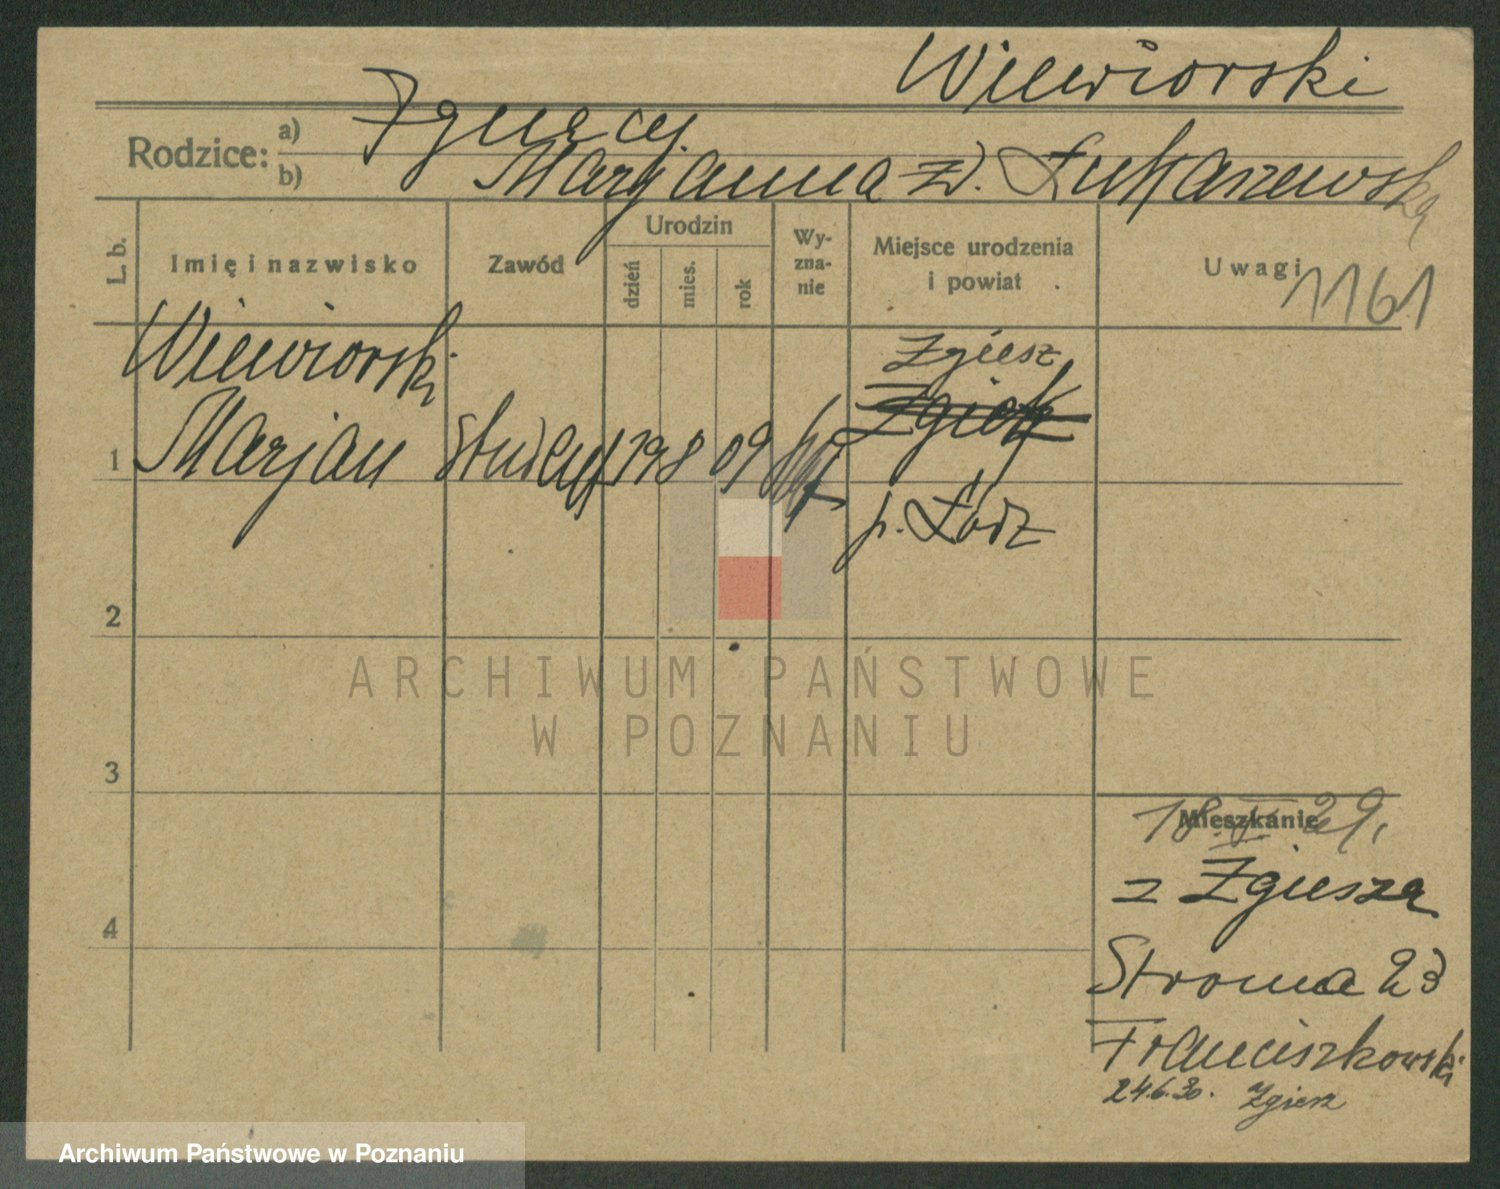 Wiewiorski
Rodzice: a) Ignacy.
b) Maryanna z d. Łukaszewska
L. b.
Imię i nazwisko
Zawód
Urodzin
dzień
mies.
rok
Wy-
zna-
nie
Miejsce urodzenia
i powiat
Uwagi
1161
Wiewiorski
Zgiesz
1 Marjan Student 19 8 09
p. Łódz
2
3
4
Mieszkanie
29.
z Zgiesza
Stroma 23
Franciszkowski
24.6.30. Zgiesz
ARCHIWUM PAŃSTWOWE
W POZNANIU
Archiwum Państwowe w Poznaniu